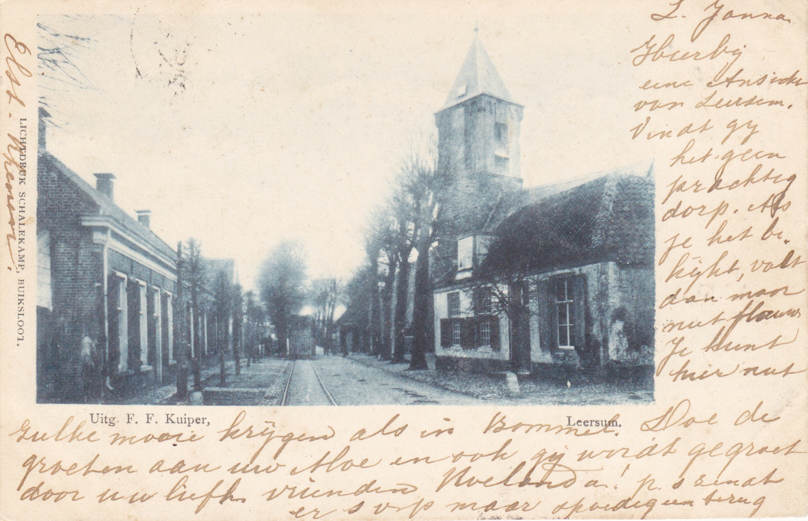 L. Janna
Hierbij
eene Ansicht
van Leersum.
Vindt gy
het geen
prachtig
dorp. Als
je het be.
kijkt, valt
dan maar
niet flauw
Je kunt
hier niet
Elst - Rhenen.
LICHTDRUK SCHALEKAMP, BUIKSLOOT.
Uitg. F. F. Kuiper,
Leersum.
Zulke mooie krijgen als in Bommel. Doe de
groeten aan uw Moe en ook gy wordt gegroet
door uw liefh. vrienden
p s zendt
er s.v.p maar spoedig een terug